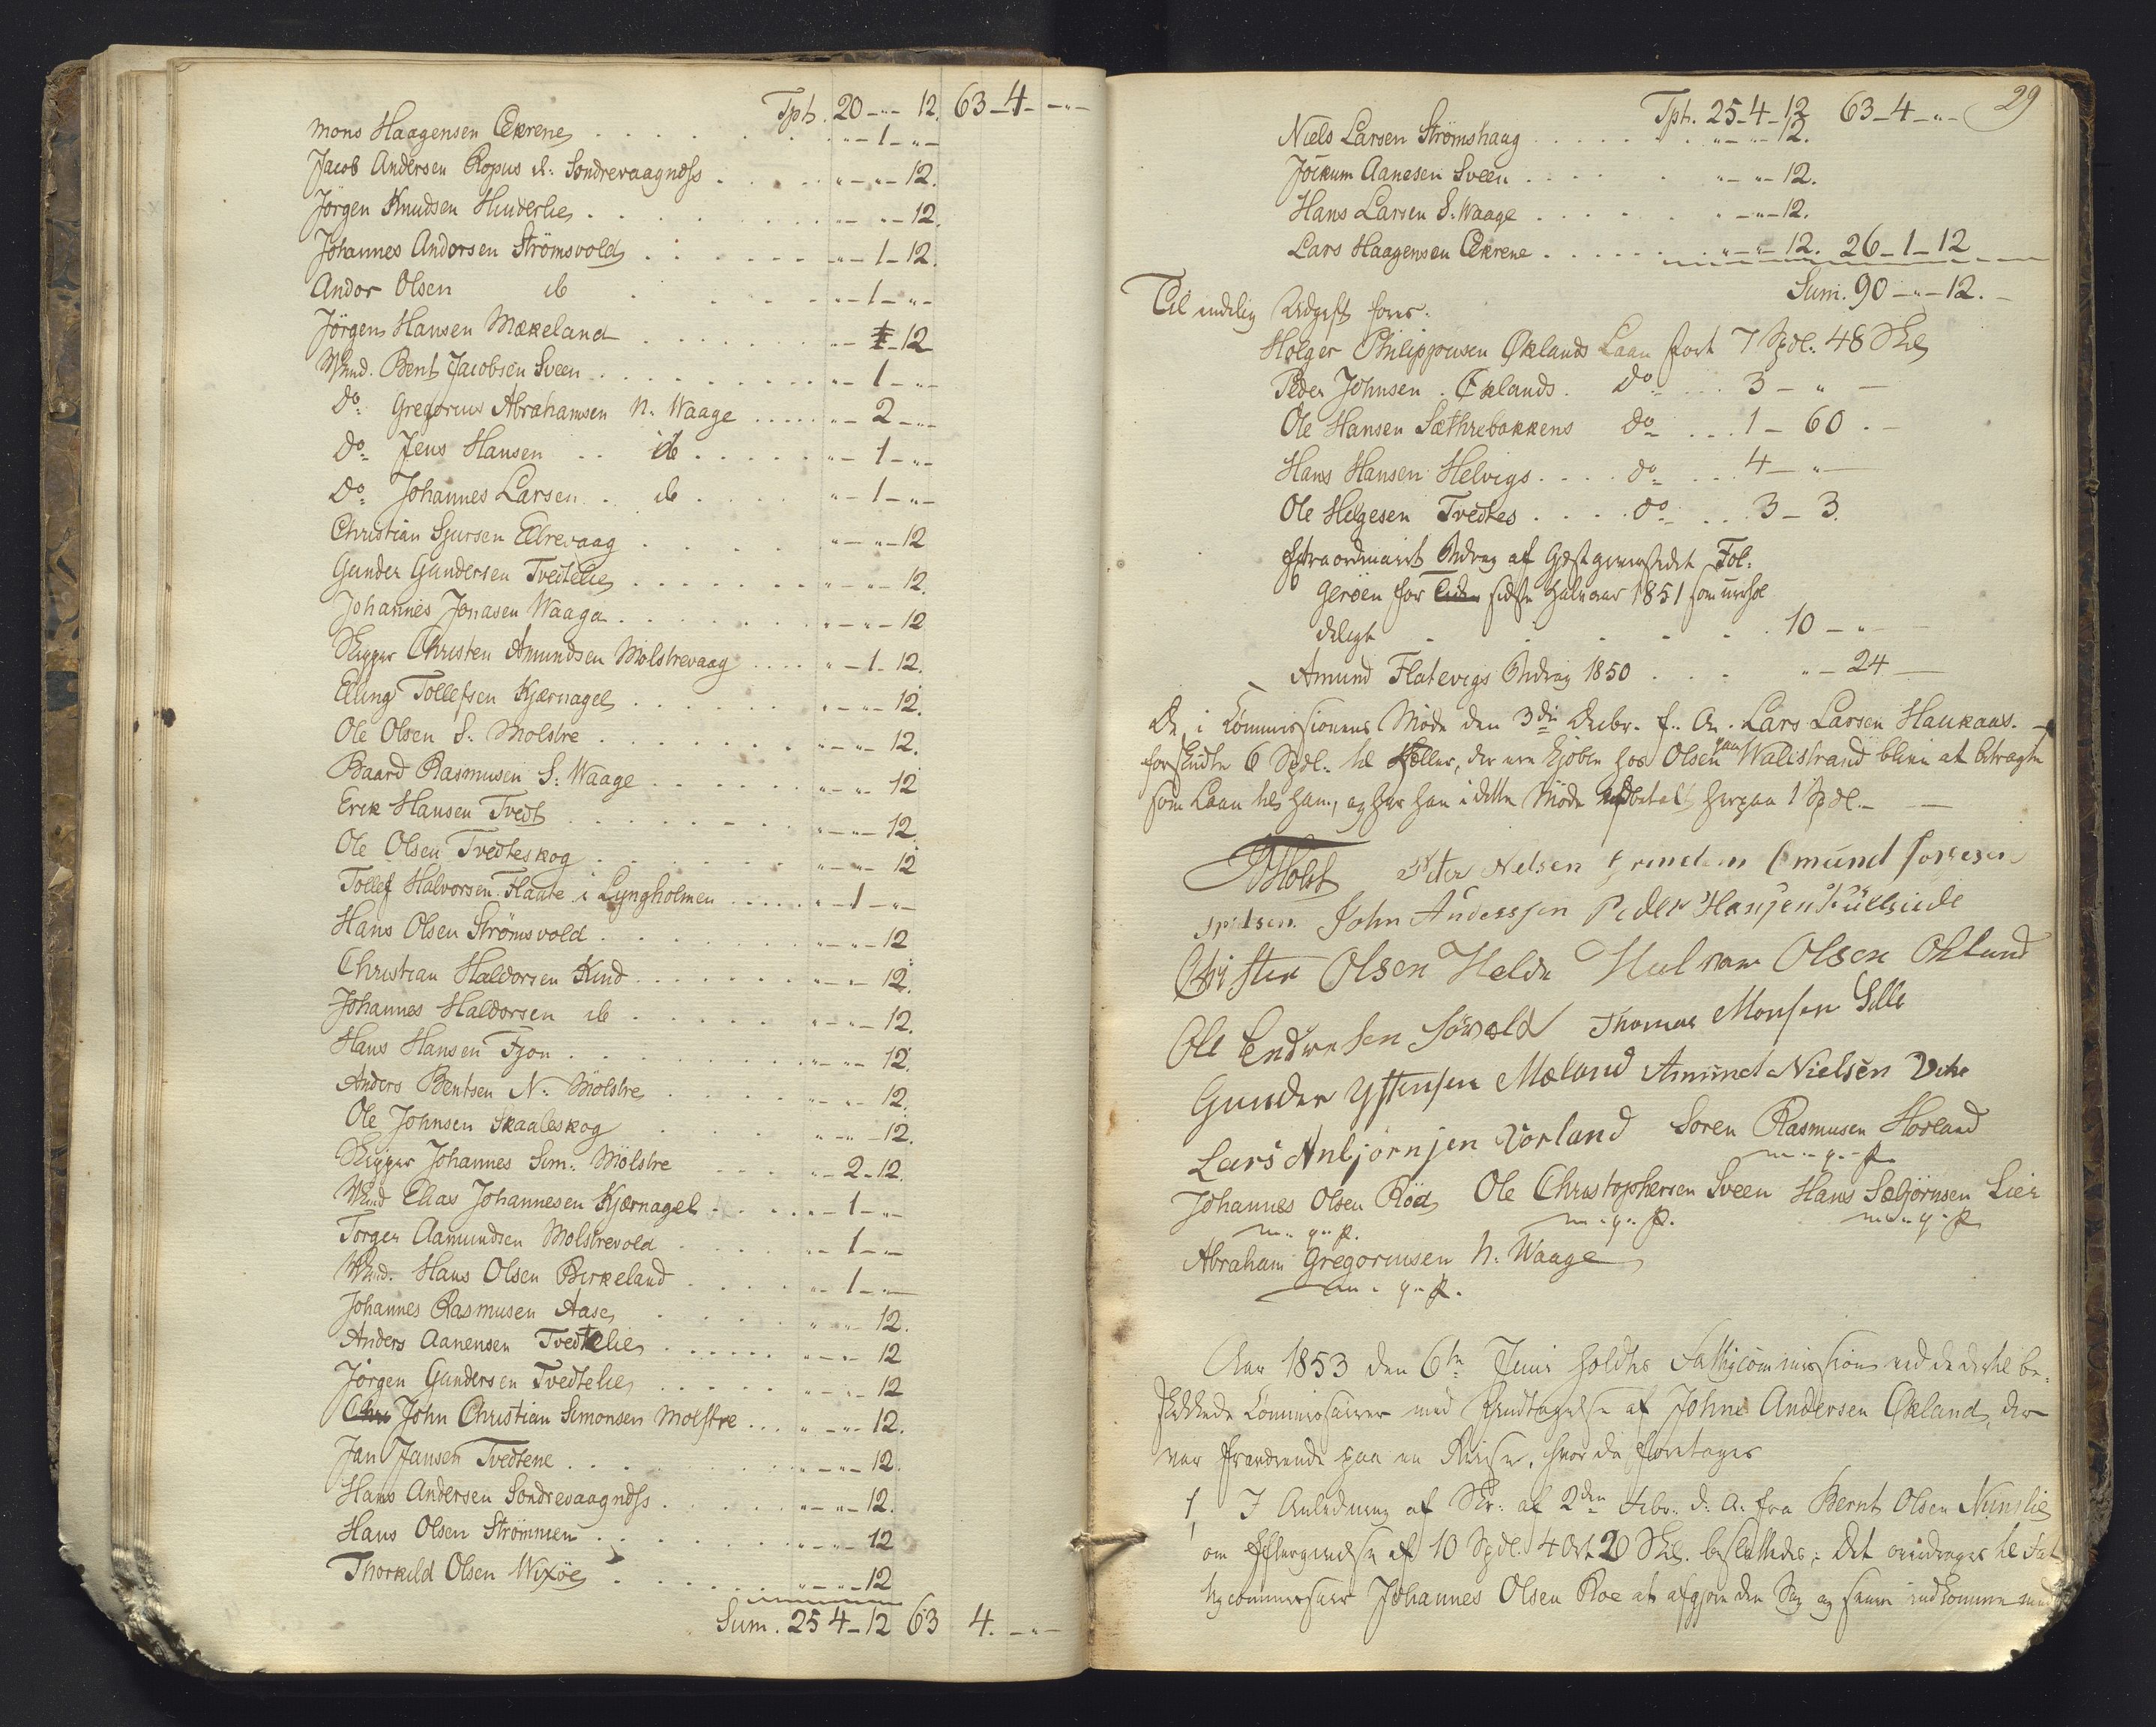 Tph. 20 - " - 12. 63 - 4 - " -
Mons Haagensen Ekrene . . . " - 1 - " -
Jacob Andersen Ropus d: Sondrevaagnæss . . . " - " - 12.
Jörgen Knudsen Hinderlie . . . " - " - 12.
Johannes Andersen Strömsvold . . . " - 1 - 12.
Andor Olsen ib . . . " - 1 - " -
Jörgen Hansen Mækeland . . . " - 1 - 12
Bent Jacobsen Sveen . . . " - 1 - " -
Do: Gregorius Abrahamsen N. Waage . . . " - 2 - " -
Do: Jens Hansen . . ib . . . " - 1 - " -
Do: Johannes Larsen . ib . . . " - 1 - " -
Christian Sjursen Elrevaag . . . " - " - 12
Gunder Gundersen Tvedtelie . . . " - " - 12.
Johannes Jonasen Waage . . . " - " - 12
Skipper Christen Amundsen Molstrevaag . . . " - 1 - 12.
Elling Tollefsen Kjærnagel . . . " - " - 12.
Ole Olsen S. Molstre . . . " - " - 12.
Baard Rasmusen S: Waage . . . " - " - 12
Erik Hansen Tvedt . . . " - " - 12.
Ole Olsen Tvedteskog . . . " - " - 12
Tollef Halvorsen Flaate i Lyngholmen . . . " - 1 - " -
Hans Olsen Strömsvold . . . " - " - 12
Christian Haldorsen Kind . . . " - " - 12.
Johannes Haldorsen ib . . . " - " - 12.
Hans Hansen Fjon . . . " - " - 12.
Anders Bentsen N. Mölstre . . . " - " - 12.
Ole Johnsen Skaaleskog . . . " - " - 12.
Skipper Johannes Sim. Mölstre . . . " - 2 - 12.
Elias Johannesen Kjærnagel . . . " - 1 - " -
Torger Aamundsen Molstrevold . . . " - 1 - " -
Hans Olsen Birkeland . . . " - 1 - " -
Johannes Rasmusen Aase . . . " - " - 12.
Anders Aanensen Tvedtelie . . . " - " - 12
Jörgen Gundersen Tvedtelie . . . " - " - 12
Chri John Christian Simonsen Molstre . . . " - " - 12.
Jan Jansen Tvedtene . . . " - " - 12.
Hans Andersen Sondrevaagnæss . . . " - " - 12.
Hans Olsen Strömmen . . . " - " - 12
Thorkild Olsen Wixöe . . . " - " - 12
Sum. 25 4 - 12 63 4. - " -
29
Tph. 25 - 4 - 12 63 - 4 - " -
Niels Larsen Strömshaug . . . " - " - 12.
Jöckum Aanesen Sveen . . . " - " - 12.
Hans Larsen S. Waage . . . " - " - 12.
Lars Haagensen Ekrene . . . " - " - 12. 26 - 1 - 12
Sum. 90 - " - 12. -
Til endelig Udgift föres:
Holger Philippousen Öklands Laan stort 7 Spdl. 48 Skl
Peder Johnsen Öklands Do . . . 3 - " -
Ole Hansen Sæthrebakkens Do . . . 1 - 60. -
Hans Hansen Helvigs . . . do . . . 4 - " -
Ole Helgesen Tvedtes . . . do . . . 3 - 3.
Extraordinairt Bidrag af Gjæstgiverstedet Fol-
geröen for Tiden sidste Halvaar 1851 som uerhol
deligt . . . 10 - " -
Amund Flatevigs Bidrag 1850 . . . " - 24 -
De i Commissionens Möde den 3die Decbr. f. A. Lars Larsen Haukaas. -
forskudte 6 Spdl. til Fæller, der ere kjöbte hos Olsen paa Walestrand bliver at betragte
som Laan til ham, og har han i dette Möde udbetalt herpaa 1 Spdl. -
Holst Peter Nelsen Amund
John Anderssen Peder Hansen
Christen Olsen Halvar Olsen Okland
Ole Endresen Thomas Monsen Lille
Gunder Ystensen Mæland Amund Nielsen
Lars Anbjörnsen Vorland Soren Rasmusen Hovland
m. p. p.
Johannes Olsen Röe Ole Christophersen Sveen Hans Sæbjörnsen Lier
m. p. p. m. p. p. m. p. p.
Abraham Gregoriusen N. Waage
m. p. p.
Aar 1853 den 6te Juni holdtes Fattigcommission ved de dertil be-
skikkede Commissairer med Undtagelse af Johns Andersen Ökland, der
var fraværende paa en Reise, hvor da foretoges
1, I Anledning af Skr. af 2den Febr. d. A. fra Bernt Olsen
om Eftergivelse af 10 Spdl. 4 Ort 20 Skl. besluttedes: Det overdrages til Fat
tigcommissair Johannes Olsen Roe at afgjöre den Sag og senere indkomme med